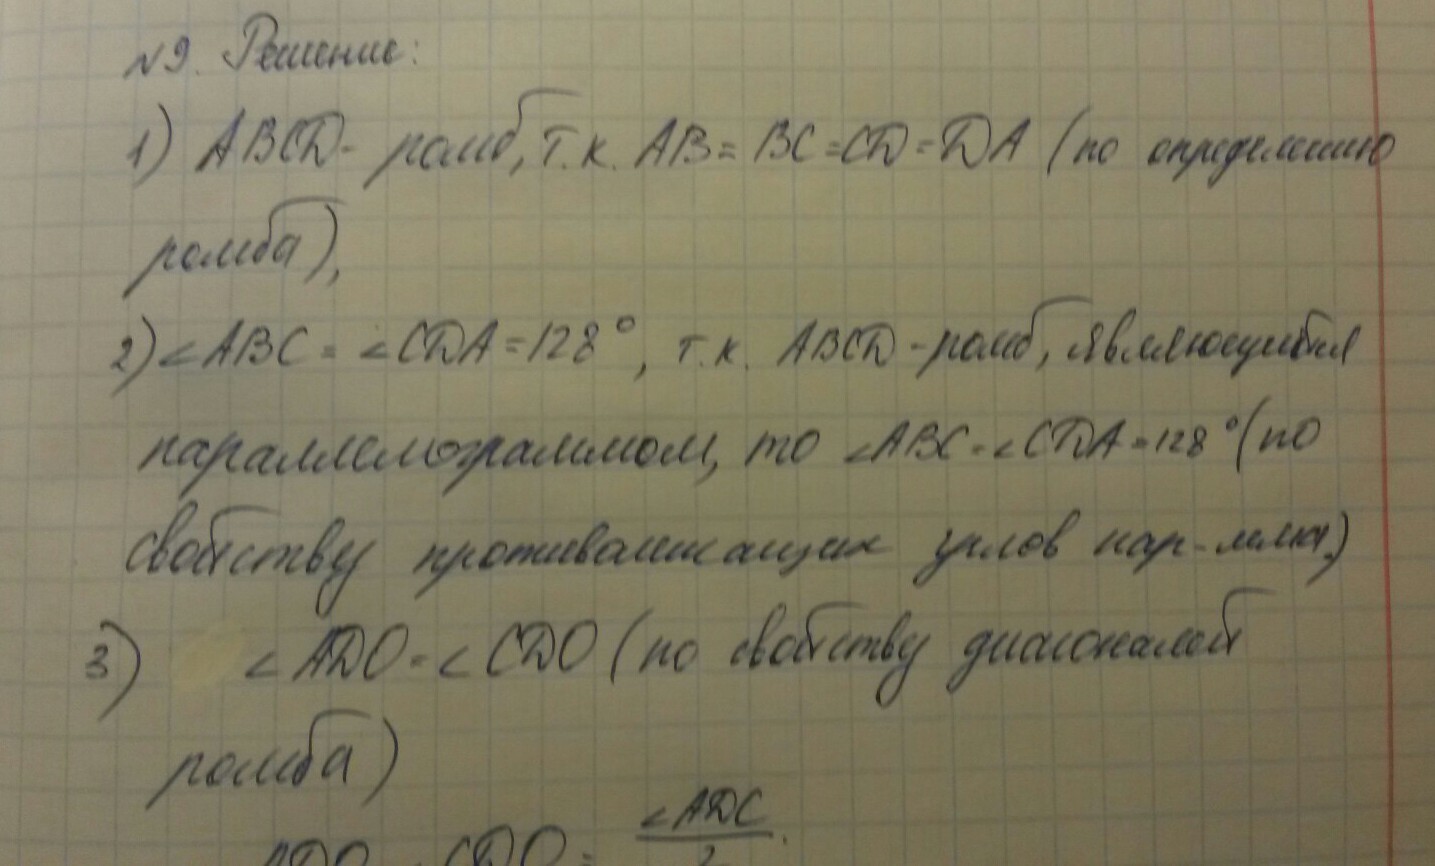 №9. Решение:
1) ABCD - ромб, т.к. AB = BC = CD = DA (по определению
ромба),
2) ∠ABC = ∠CDA = 128°, т.к. ABCD - ромб, являющийся
параллелограммом, то ∠ABC = ∠CDA = 128° (по
свойству противолежащих углов пар-мма)
3) ∠ADO = ∠CDO (по свойству диагоналей
ромба)
∠ADC
ADO = ∠CDO = 2.